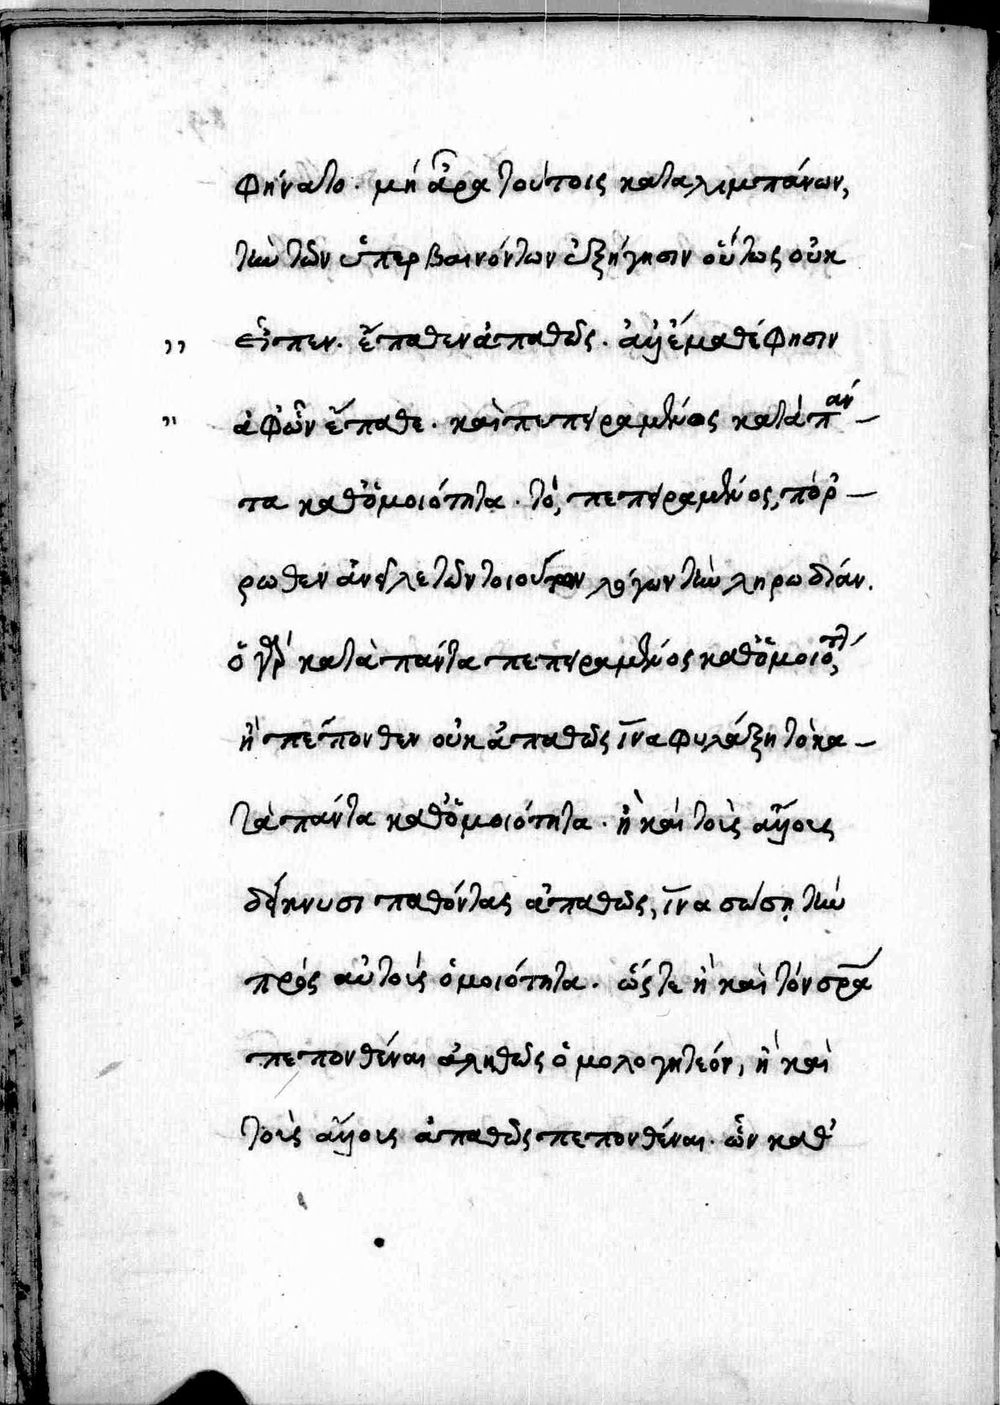 φήνατο. μὴ ἆρα τούτοις καταλιμπάνων,
τὴν τῶν ὑπερβαινόντων ἐξήγησιν οὕτως οὐκ
,, εἶπεν. ἔπαθεν ἀπαθῶς. ἀλλ' ἔμαθέ φησιν
,, ἀφ' ὧν ἔπαθε. καὶ πεπειραμένος κατὰ πάν-
τα καθ' ὁμοιότητα. τὸ, πεπειραμένος, πόρ-
ρωθεν ἀνεῖλε τῶν τοιούτων λόγων τὴν ληρωδίαν.
ὁ γὰρ κατὰ πάντα πεπειραμένος καθ' ὁμοιότητα,
ἢ πέπονθεν οὐκ ἀπαθῶς ἵνα φυλάξῃ τὸ κα-
τὰ πάντα καθ' ὁμοιότητα. ἢ καὶ τοὺς ἄλλους
δείκνυσι παθόντας ἀπαθῶς, ἵνα σώσῃ τὴν
πρὸς αὐτοὺς ὁμοιότητα. ὥστε ἢ καὶ τὸν σρα
πεπονθέναι ἀληθῶς ὁμολογητέον, ἢ καὶ
τοὺς ἄλλους ἀπαθῶς πεπονθέναι. ὧν καθ'